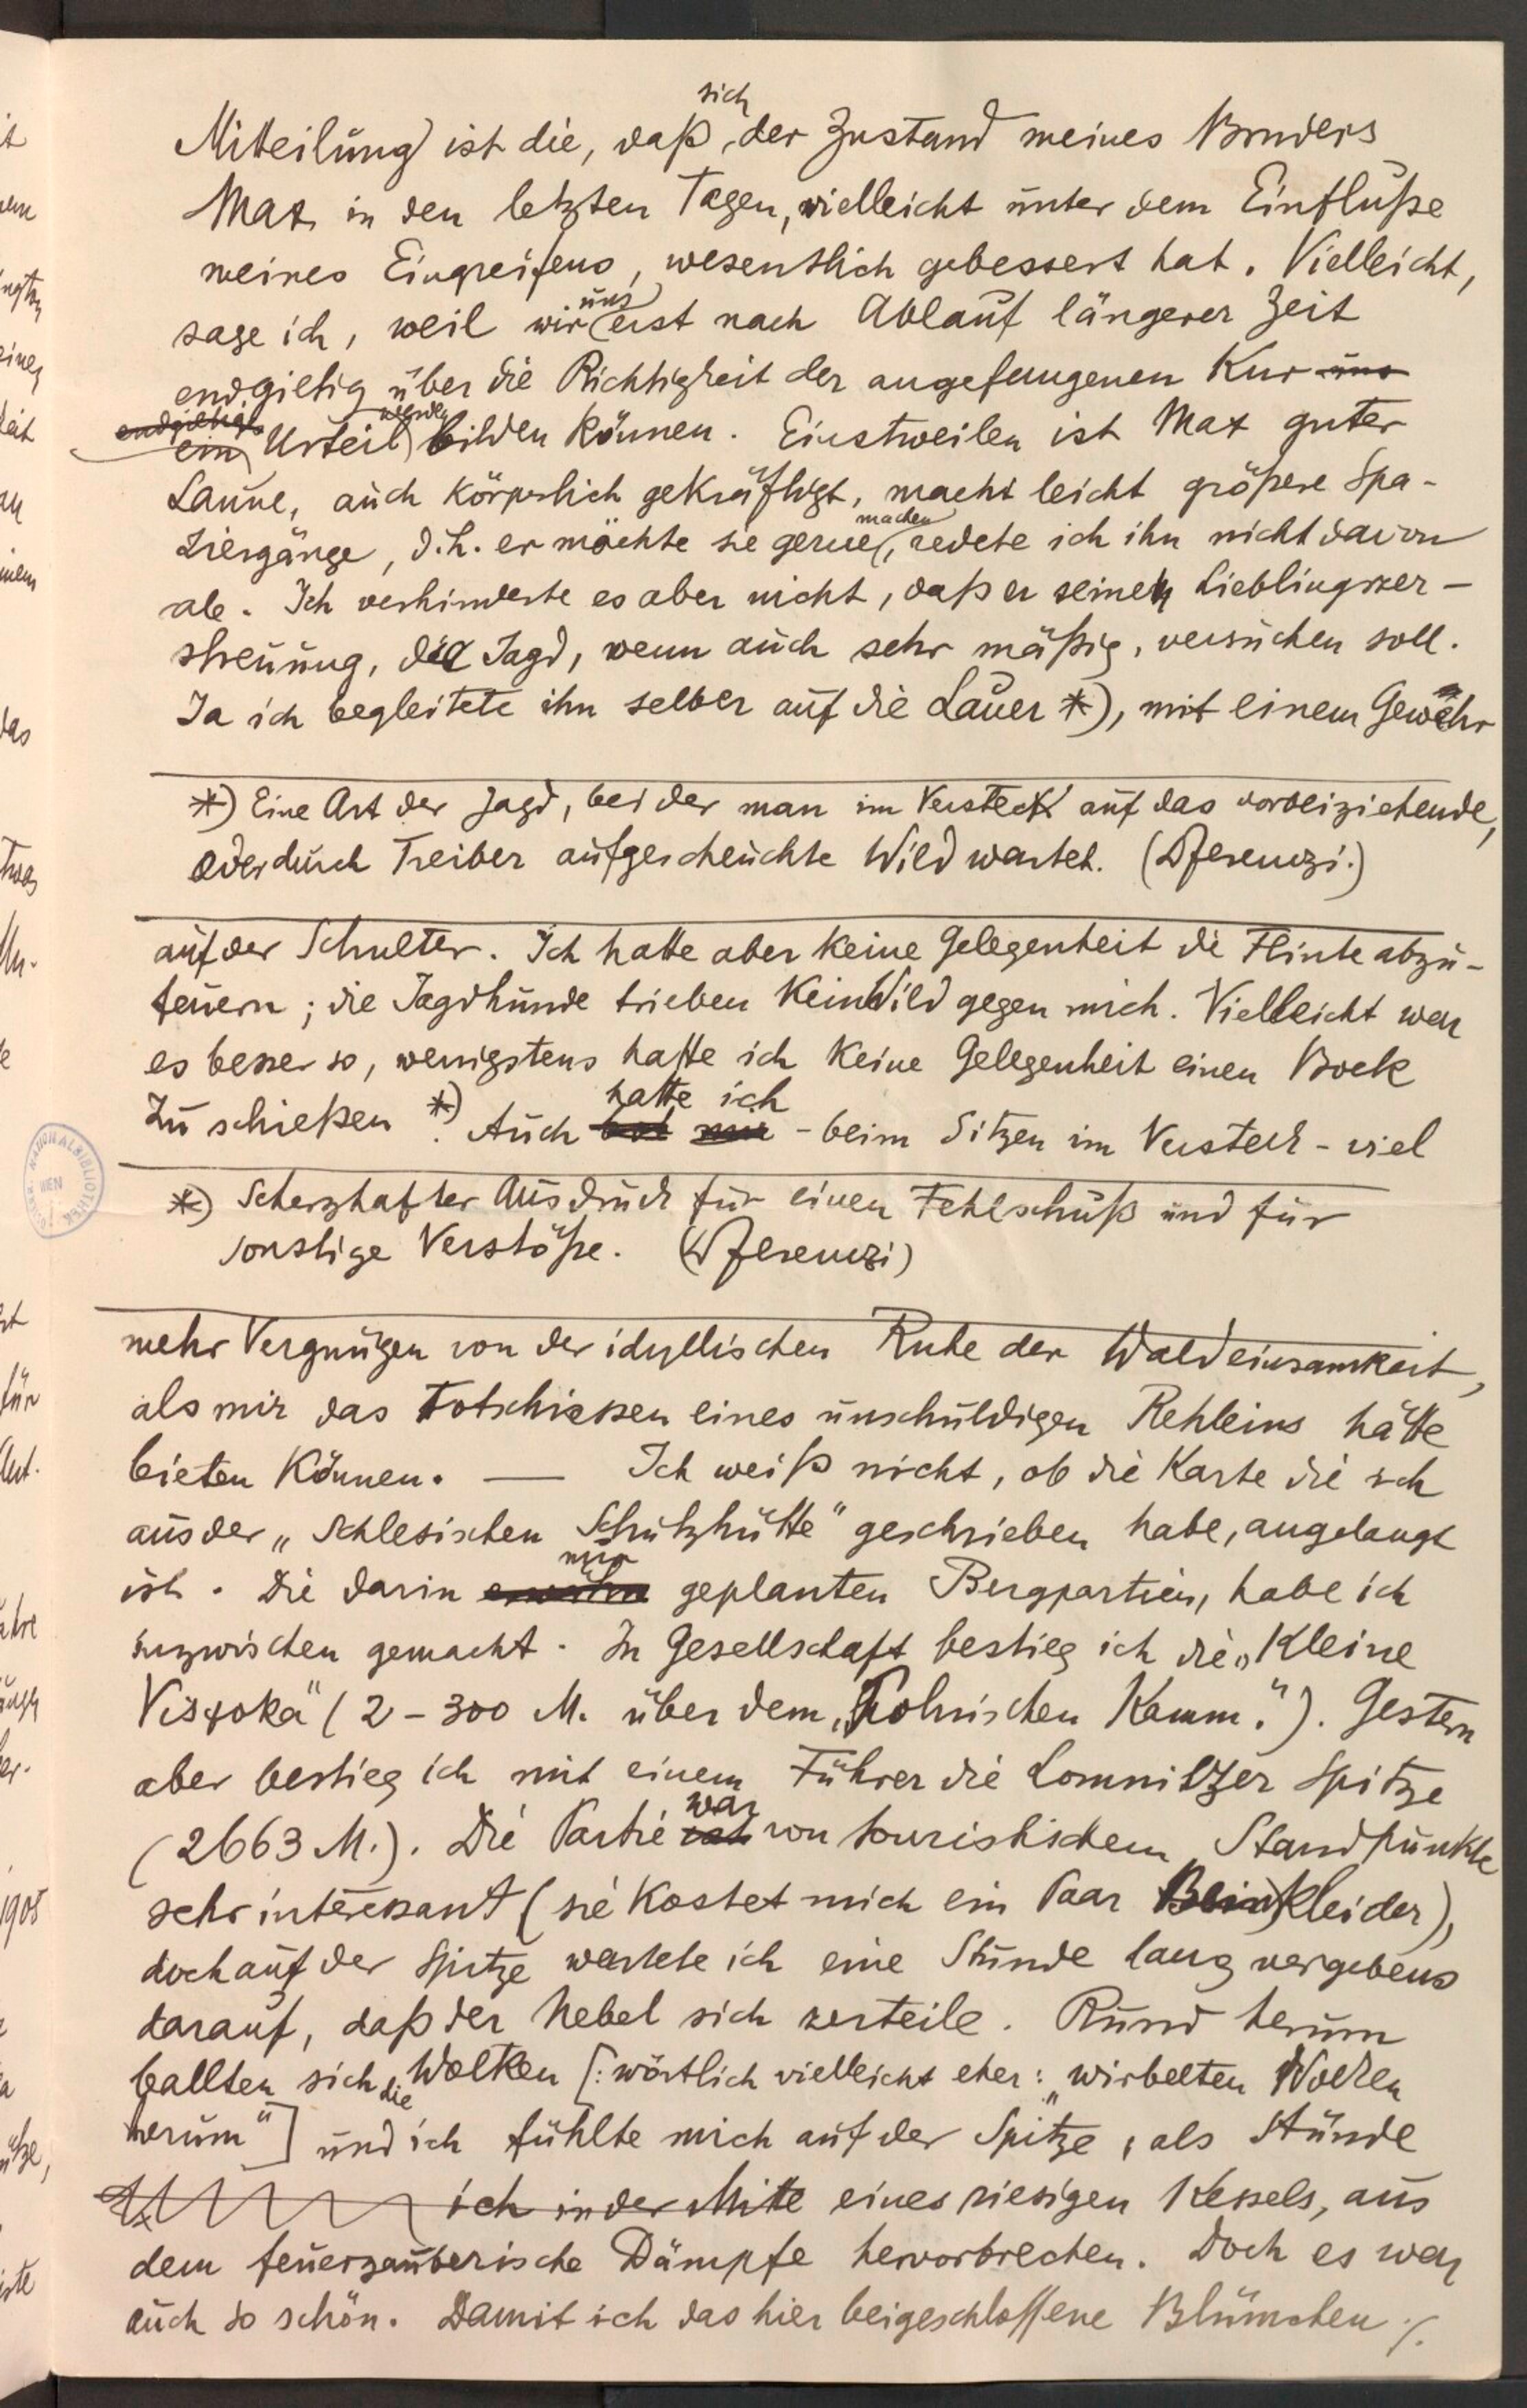 sich
Mitteilung ist die, daß der Zustand meines Bruders
Max in den letzten Tagen, vielleicht unter dem Einfluße
meines Eingreifens, wesentlich gebessert hat. Vielleicht,
uns
sage ich, weil wir erst nach Ablauf längerer Zeit
endgiltig über die Richtigkeit der angefangenen Kur uns
endgiltiges werden
ein Urteil bilden können. Einstweilen ist Max guter
Laune, auch körperlich gekräftigt, macht leicht größere Spa-
machen
ziergänge, d.h. er möchte sie gerne, redete ich ihn nicht davon
ab. Ich verhinderte es aber nicht, daß er seinen Lieblingszer-
streuung, die Jagd, wenn auch sehr mäßig, versuchen soll.
Ja ich begleitete ihn selber auf die Lauer *), mit einem Gewehr
*) Eine Art der Jagd, bei der man im Versteck auf das vorbeiziehende,
oder durch Treiber aufgescheuchte Wild wartet. (Dr Ferenczi.)
auf der Schulter. Ich hatte aber keine Gelegenheit die Flinte abzu-
feuern; die Jagdhunde trieben kein Wild gegen mich. Vielleicht war
es besser so, wenigstens hatte ich keine Gelegenheit einen Bock
hatte ich
zu schießen *). Auch bot mir - beim Sitzen im Versteck - viel
*) Scherzhafter Ausdruck für einen Fehlschuß und für
sonstige Verstöße. (Dr Ferenczi)
mehr Vergnügen von der idyllischen Ruhe der Waldeinsamkeit,
als mir das Totschiessen eines unschuldigen Rehleins hätte
bieten können. — Ich weiß nicht, ob die Karte die ich
aus der „Schlesischen Schutzhütte" geschrieben habe, angelangt
nur
ist. Die darin geplanten Bergpartien, habe ich
inzwischen gemacht. In Gesellschaft bestieg ich die „Kleine
Visoka" (2-300 M. über dem „Polnischen Kamm."). Gestern
aber bestieg ich mit einem Führer die Lomnitzer Spitze
war
(2663 M.). Die Partie ist von touristischem Standpunkte
sehr interessant (sie kostet mich ein Paar Beinkleider),
doch auf der Spitze wartete ich eine Stunde lang vergebens
darauf, daß der Nebel sich zerteile. Rund herum
ballten sich die Wolken [: wörtlich vielleicht eher: „wirbelten Wolken
herum"] und ich fühlte mich auf der Spitze, als stünde
ich in der Mitte eines riesigen Kessels, aus
dem feuerzauberische Dämpfe hervorbrechen. Doch es war
auch so schön. Damit ich das hier beigeschlossene Blümchen ./.